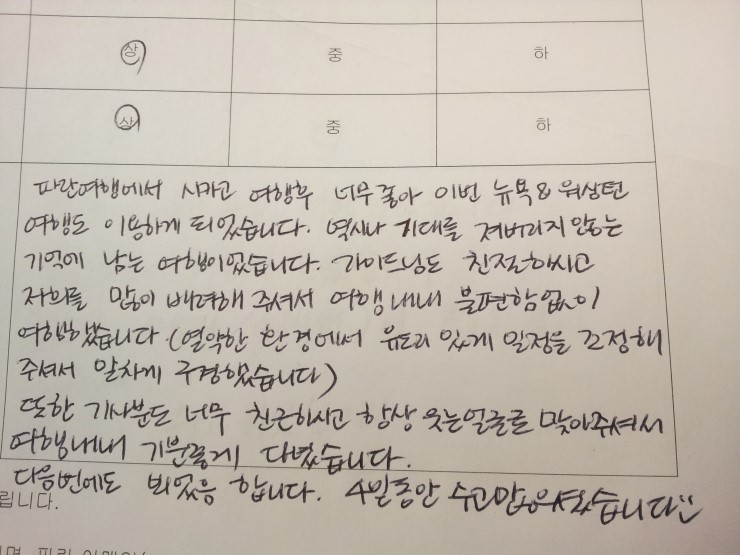 상 중 하
상 중 하
파란여행에서 시카고 여행후 너무 좋아 이번 뉴욕&워싱턴
여행도 이용하게 되었습니다. 역시나 기대를 져버리지 않는
기억에 남는 여행이었습니다. 가이드님도 친절하시고
저희를 많이 배려해 주셔서 여행내내 불편함없이
여행했습니다 (열악한 환경에서 유도리 있게 일정을 조정해
주셔서 알차게 구경했습니다)
또한 기사분도 너무 친근하시고 항상 웃는얼굴로 맞아주셔서
여행내내 기분좋게 다녔습니다.
다음번에도 뵈었음 합니다. 4일동안 수고많으셨습니다
립니다.